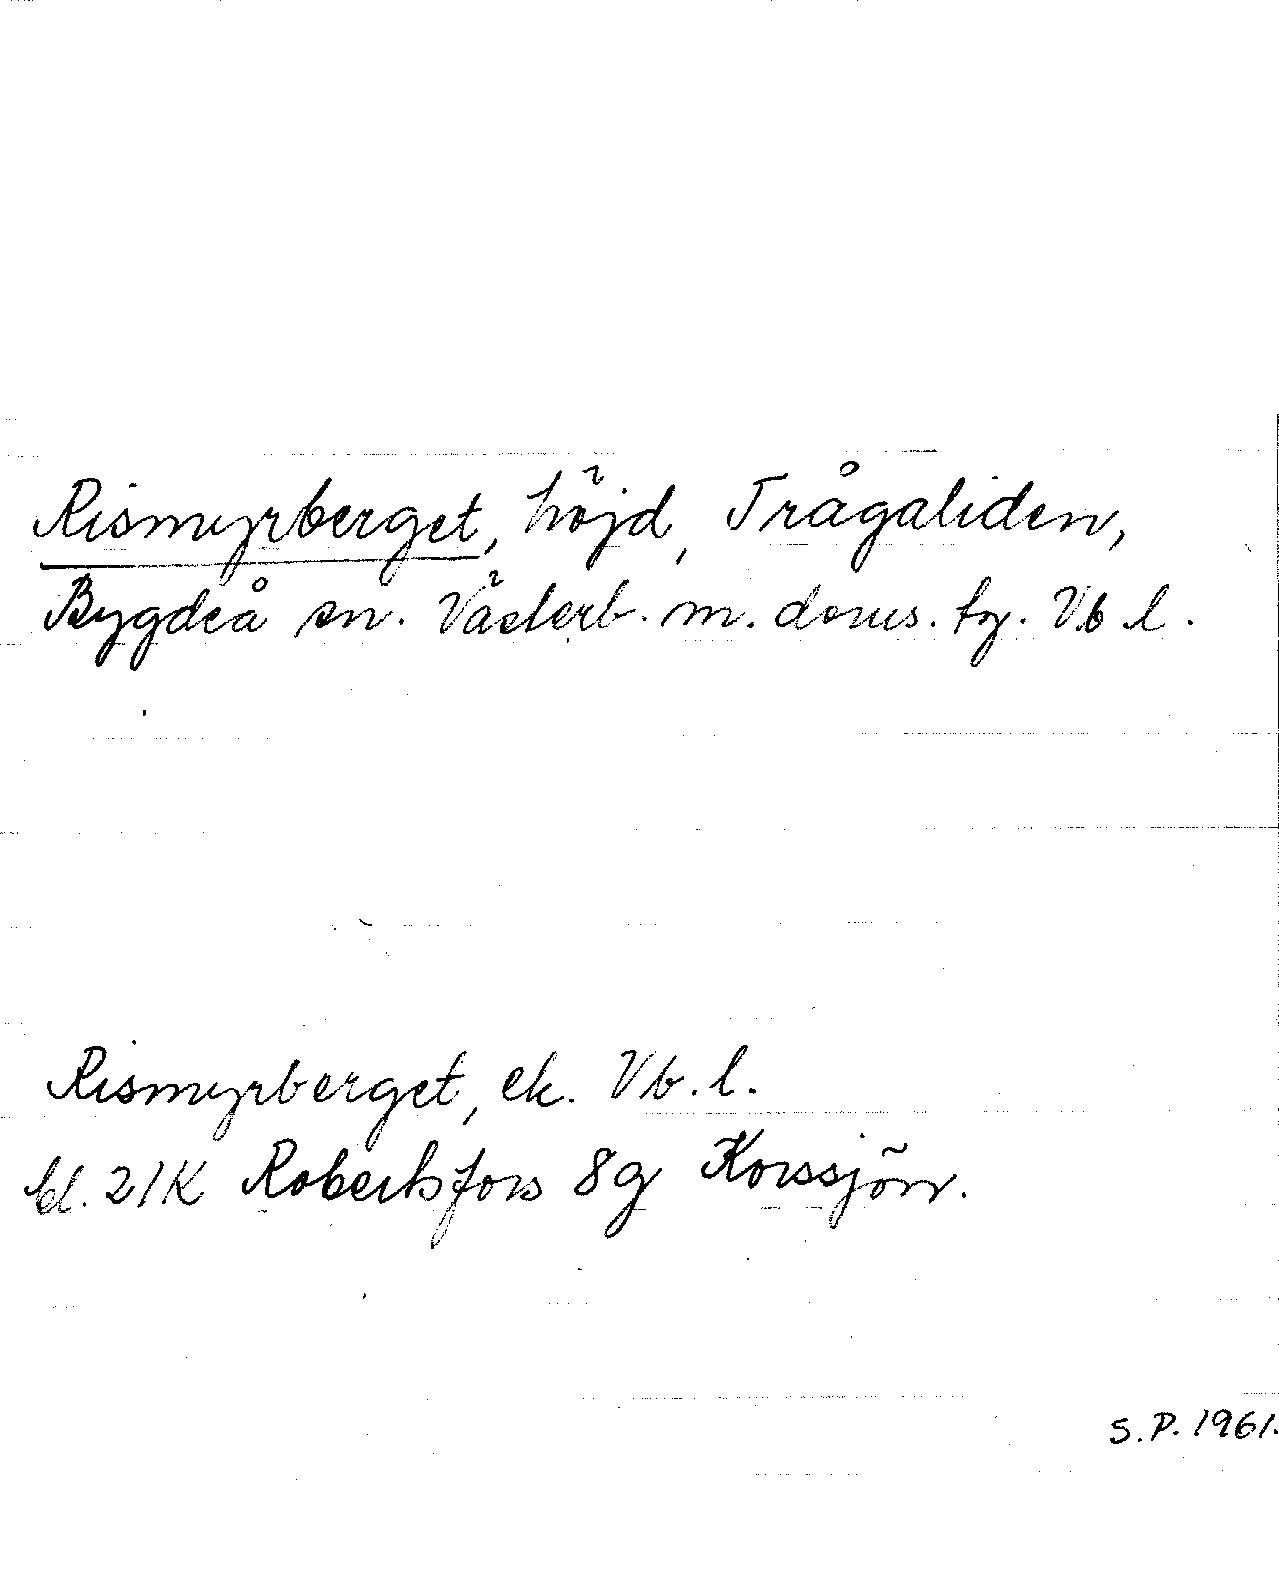 Rismyrberget, höjd, Trågaliden,
Bygdeå sn. Västerb. m. doms. tg. Vb l.
Rismyrberget, ek. Vb. l.
bl. 21K Robertsfors 8g Korssjön.
S.P. 1961.